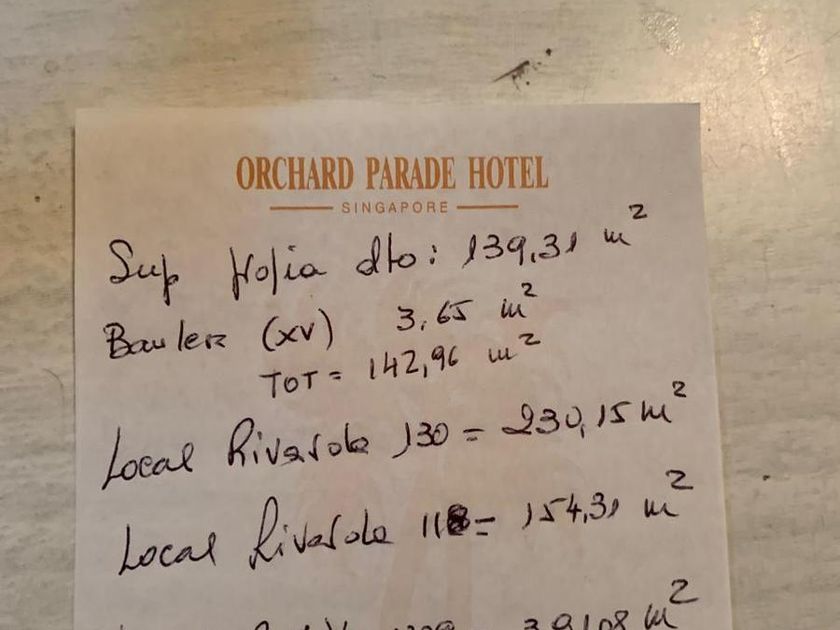 ORCHARD PARADE HOTEL
SINGAPORE
Sup propia dto: 139,31 m²
Baulera (XV) 3,65 m²
TOT = 142,96 m²
Local Rivarola 130 = 230,15 m²
Local Rivarola 118 = 154,31 m²
m²